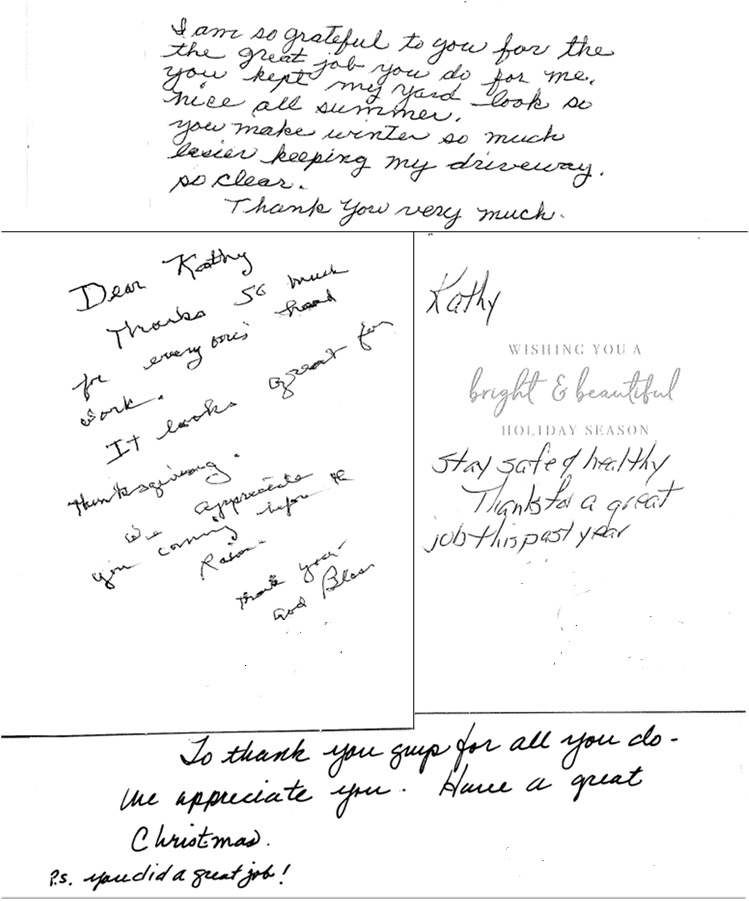 I am so grateful to you for the
the great job you do for me.
you kept my yard look so
nice all summer.
you make winter so much
easier keeping my driveway.
so clear.
Thank You very much.
Dear Kathy
Thanks so much
for every ones hard
work.
It looks great for
Thanksgiving.
We appreciate
you coming before the
Rain.
Thank you
God Bless
Kathy
WISHING YOU A
bright & beautiful
HOLIDAY SEASON
Stay safe & healthy
Thanks for a great
job this past year
To thank you guys for all you do -
We appreciate you. Have a great
Christmas.
P.S. you did a great job!